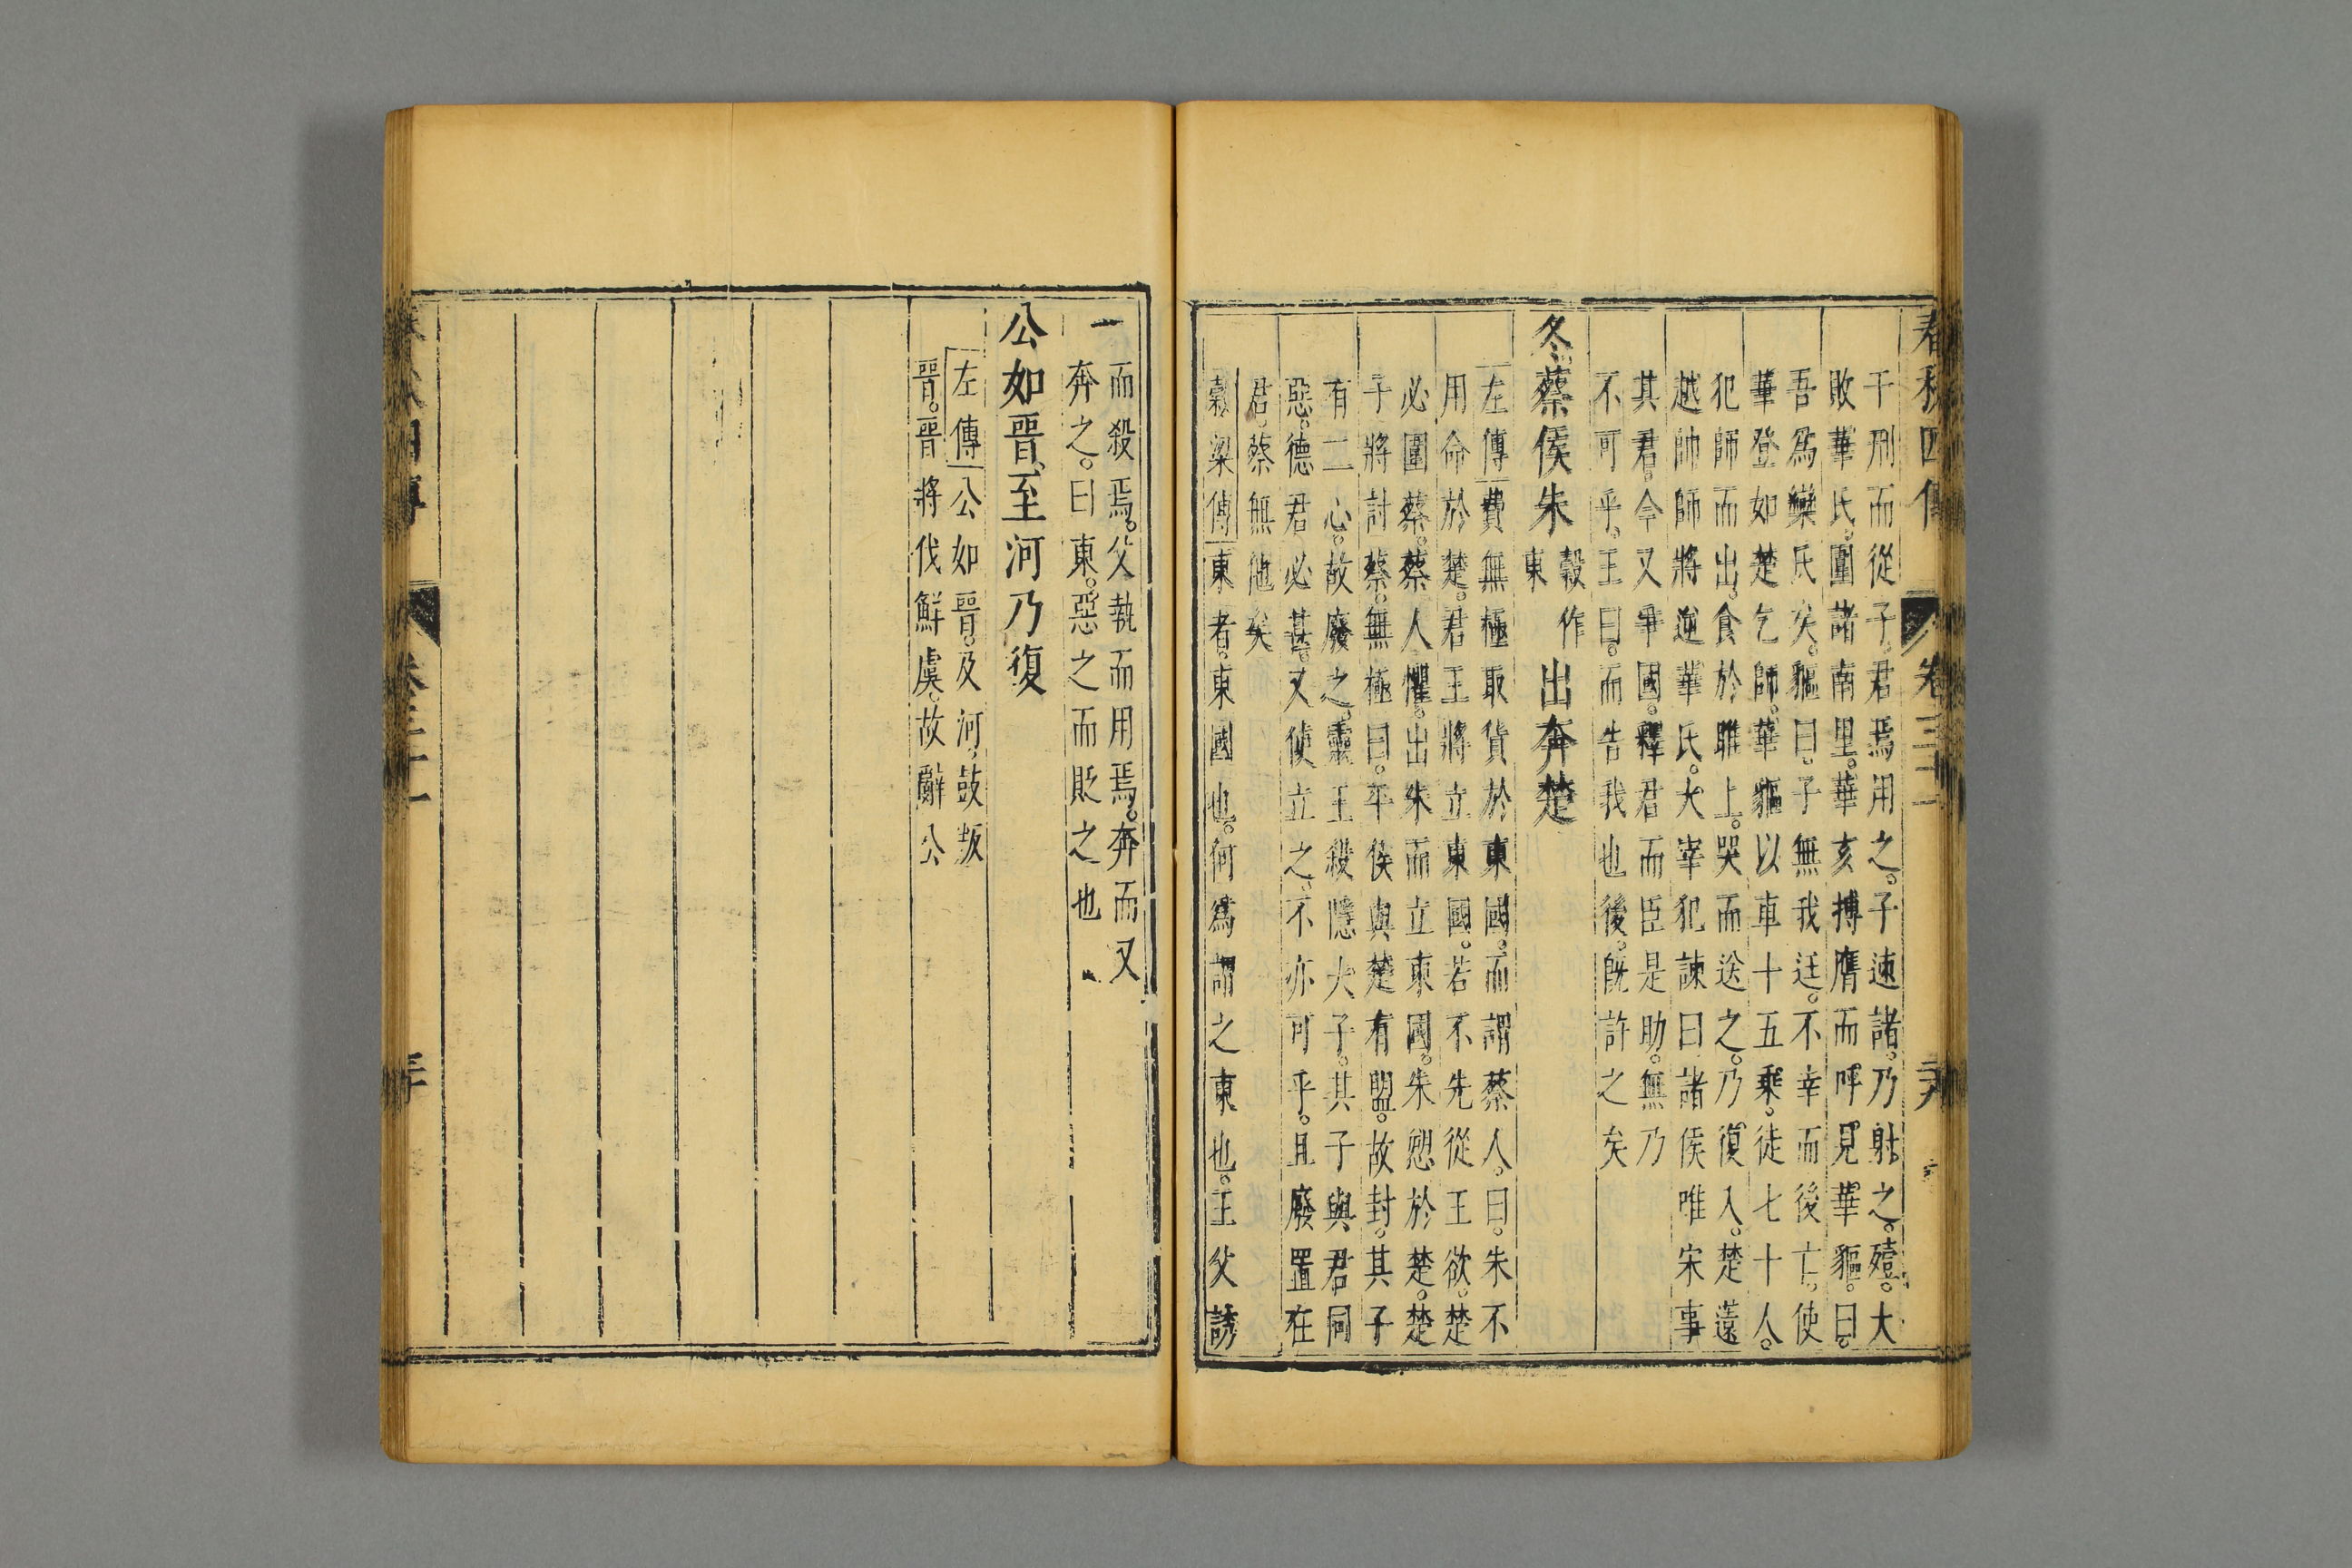 春秋四傳 卷二十一
干刑而從子君焉用之子速諸乃射之殪大
敗華氏圍諸南里華亥搏膺而呼見華貙曰
吾爲欒氏矣貙曰子無我迋不幸而後亡使
華登如楚乞師華貙以車十五乘徒七十人
犯師而出食於睢上哭而送之乃復入楚薳
越帥師將逆華氏大宰犯諫曰諸侯唯宋事
其君今又爭國釋君而臣是助無乃
不可乎王曰而告我也後旣許之矣
冬蔡侯朱穀作東出奔楚
左傳費無極取貨於東國而謂蔡人曰朱不
用命於楚君王將立東國若不先從王欲楚
必圍蔡蔡人懼出朱而立東國朱愬於楚楚
子將討蔡無極曰平侯與楚有盟故封其子
有二心故廢之靈王殺隱大子其子與君同
惡德君必甚又使立之不亦可乎且廢置在
君蔡無他矣
穀梁傳東者東國也何爲謂之東也王父誘
而殺焉父執而用焉奔而又
奔之曰東惡之而貶之也
公如晉至河乃復
左傳公如晉及河鼓叛
晉晉將伐鮮虞故辭公